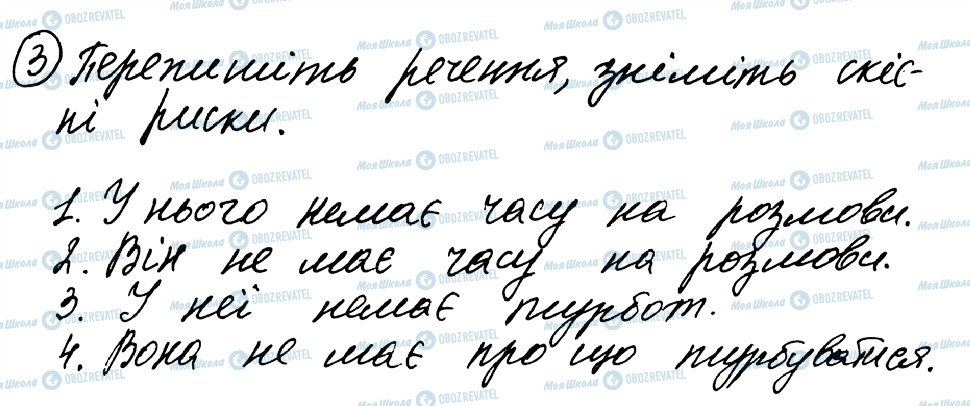 3 Перепишіть речення, зніміть скіс-
ні риски.
1. У нього немає часу на розмови.
2. Він не має часу на розмови.
3. У неї немає турбот.
4. Вона не має про що турбуватися.